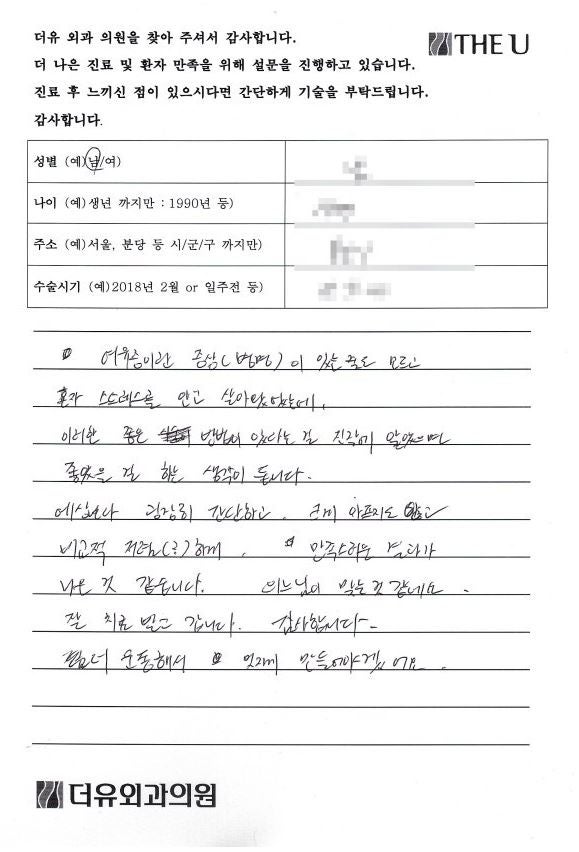 더유 외과 의원을 찾아 주셔서 감사합니다.
THE U
더 나은 진료 및 환자 만족을 위해 설문을 진행하고 있습니다.
진료 후 느끼신 점이 있으시다면 간단하게 기술을 부탁드립니다.
감사합니다.
성별 (예)남/여)
나이 (예)생년 까지만 : 1990년 등)
주소 (예)서울, 분당 등 시/군/구 까지만)
수술시기 (예)2018년 2월 or 일주전 등)
여유증이란 증상(병명)이 있는줄도 모르고
혼자 스트레스를 안고 살아왔었는데,
이러한 좋은 방법이 있다는걸 진작에 알았으면
좋았을 걸 하는 생각이 듭니다.
예상보다 굉장히 간단하고, 크게 아프지도 않고
비교적 저렴(?)하게, 만족스러운 결과가
나온 것 같습니다. 맞는것 같네요.
잘 치료 받고 갑니다. 감사합니다~
운동해서 멋지게 만들어야겠어요.
더유외과의원